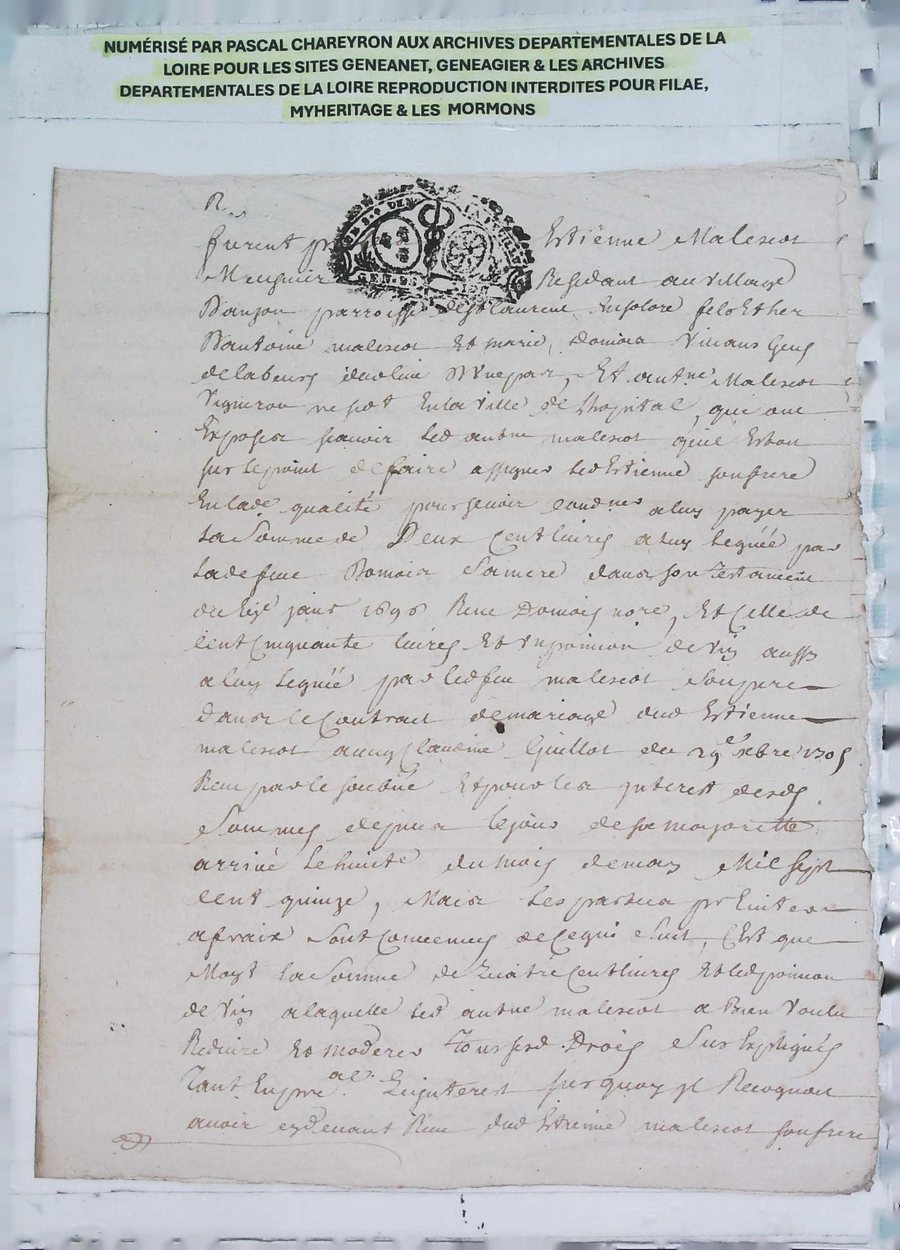 NUMÉRISÉ PAR PASCAL CHAREYRON AUX ARCHIVES DEPARTEMENTALES DE LA
LOIRE POUR LES SITES GENEANET, GENEAGIER & LES ARCHIVES
DEPARTEMENTALES DE LA LOIRE REPRODUCTION INTERDITES POUR FILAE,
MYHERITAGE & LES MORMONS
furent Estienne Malescot
Meusnier Residant au village
parroisse de st laurent filz Et her
D'antoine malescot Et marie vivans
de labeurs Et antne Malescot
Vigneron En la ville de l'hopital, que
Exposer sçavoir led antne malescot qu'il Estoit
sur le point de faire assigner led Estienne son frere
En lad qualité pour se voir condner a luy payer
La Somme de Deux Cent livres a luy leguée par
Lade feue sa mere dans son Testament
du janr 1696 Receu nore, Et Celle de
Cent Cinquante livres Et un poinson de vin aussy
a luy leguée par led feu malescot son pere
Dans le Contract de mariage dud Estienne
malescot avecq Claudine Guillot du 29e xbre 1705
Receu par le soubné Et pour les interest desd
Sommes depuis le jour de sa majoritté
arrivé le huite du mois de may Mil sept
Cent quinze, Mais Les parties pr Eviter
a fraix sont Convenues de Ce qui suit, C'Est que
Moyt La Somme de Quatre Cent livres Et led poinson
de vin a laquelle led antne malescot a Bien voulu
Reduire Et moderer Tous sesd Droicts Sus Expliqués
Tant En pral qu'interest sur quoy il Recognoit
avoir cy devant Receu dud Estienne malescot son frere